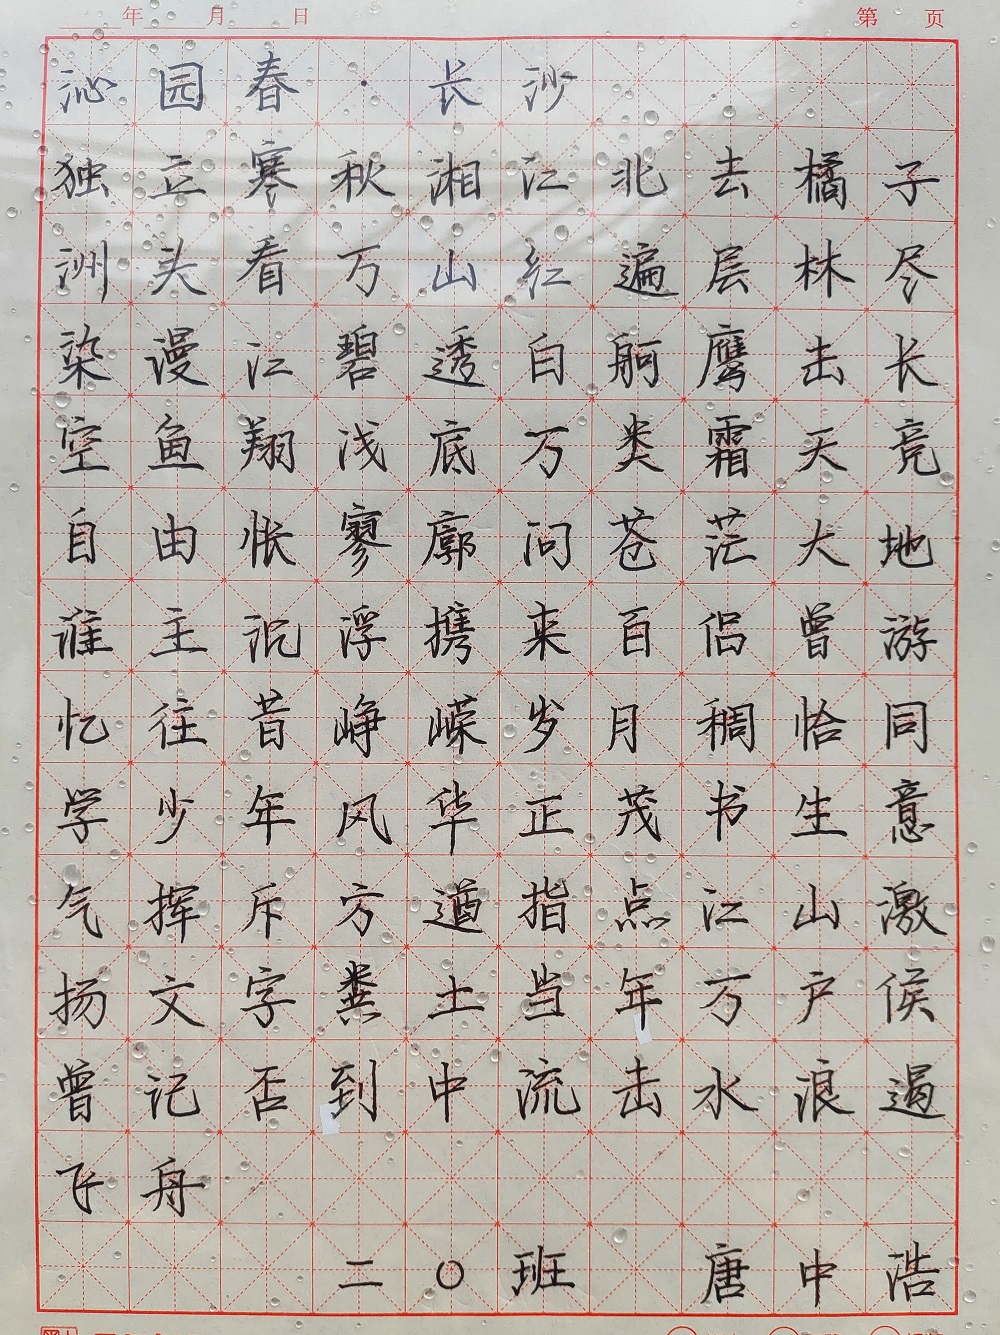 年 月 日 第 页
沁园春·长沙
独立寒秋湘江北去橘子
洲头看万山红遍层林尽
染漫江碧透白舸鹰击长
空鱼翔浅底万类霜天竞
自由怅寥廓问苍茫大地
谁主沉浮携来百侣曾游
忆往昔峥嵘岁月稠恰同
学少年风华正茂书生意
气挥斥方遒指点江山激
扬文字粪土当年万户侯
曾记否到中流击水浪遏
飞舟
二〇班 唐中浩